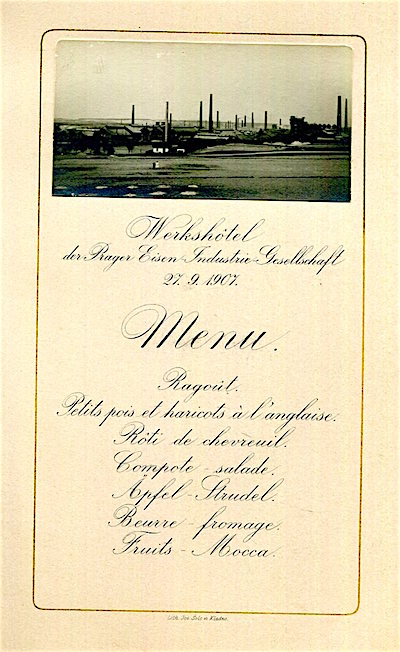 Werkshôtel
der Prager Eisen-Industrie-Gesellschaft
27. 9. 1907.
Menu.
Ragoût.
Petits pois et haricots à l'anglaise.
Rôti de chevreuil.
Compote - salade.
Äpfel - Strudel.
Beurre - fromage.
Fruits - Mocca.
Lith. Jos. Solc in Kladno.